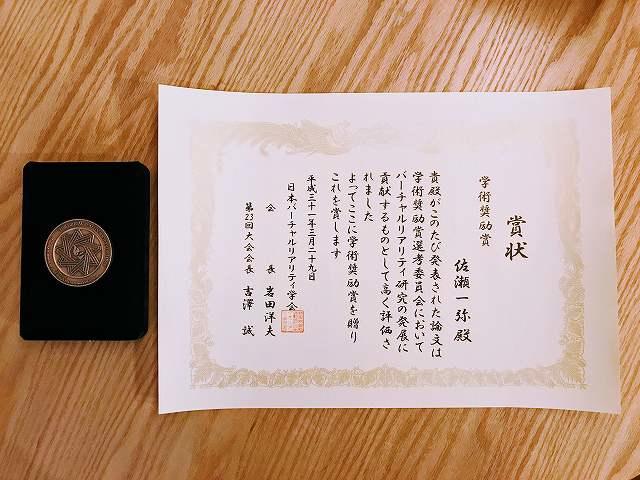 賞状
学術奨励賞
佐瀬一弥殿
貴殿がこのたび発表された論文は
学術奨励賞選考委員会において
バーチャルリアリティ研究の発展に
貢献するものとして高く評価さ
れました
よってここに学術奨励賞を贈り
これを賞します
平成三十一年三月二十九日
日本バーチャルリアリティ学会
会長 岩田洋夫
第23回大会会長 吉澤誠